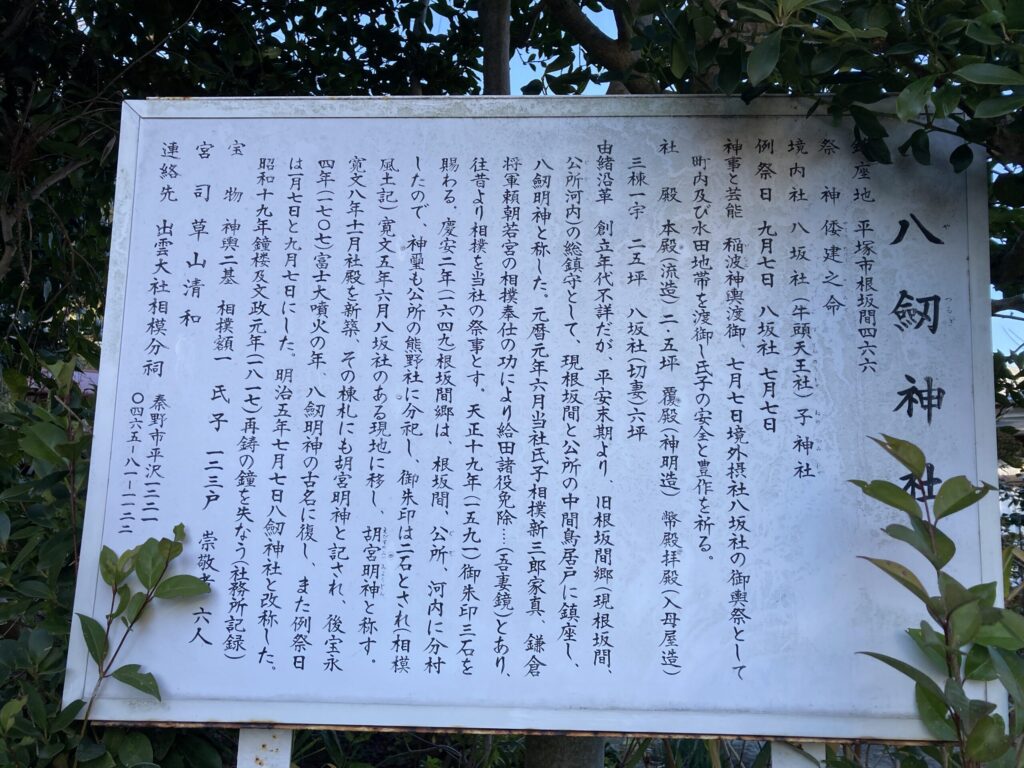 八剱神社
鎮座地 平塚市根坂間四六六
祭神 倭建之命
境内社 八坂社(牛頭天王社)子神社
例祭日 九月七日 八坂社 七月七日
神事と芸能 稲波神輿渡御、七月七日境外摂社八坂社の御輿祭として
町内及び水田地帯を渡御し氏子の安全と豊作を祈る。
社殿 本殿(流造)二・五坪 覆殿(神明造) 幣殿拝殿(入母屋造)
三棟一宇 二五坪 八坂社(切妻)六坪
由緒沿革 創立年代不詳だが、平安末期より、旧根坂間郷(現根坂間、
公所河内の総鎮守として、現根坂間と公所の中間鳥居戸に鎮座し、
八剱明神と称した。元暦元年六月当社氏子相撲新三郎家真、鎌倉
将軍頼朝若宮の相撲奉仕の功により給田諸役免除…(吾妻鏡)とあり、
往昔より相撲を当社の祭事とす。天正十九年(一五九一)御朱印三石を
賜わる。慶安二年(一六四九)根坂間郷は、根坂間、公所、河内に分村
したので、神璽も公所の熊野社に分祀し、御朱印は二石とされ(相模
風土記)寛文五年六月八坂社のある現地に移し、胡宮明神と称す。
寛文八年十一月社殿を新築、その棟札にも胡宮明神と記され、後宝永
四年(一七〇七)富士大噴火の年、八剱明神の古名に復し、また例祭日
は一月七日と九月七日にした。明治五年七月七日八剱神社と改称した。
昭和十九年鐘楼及文政元年(一八一七)再鋳の鐘を失なう(社務所記録)
宝物 神輿二基 相撲額一 氏子 一三三戸 崇敬者 六人
宮司 草山清和
連絡先 出雲大社相模分祠 秦野市平沢一二二一
〇四六五-八一-一一二二